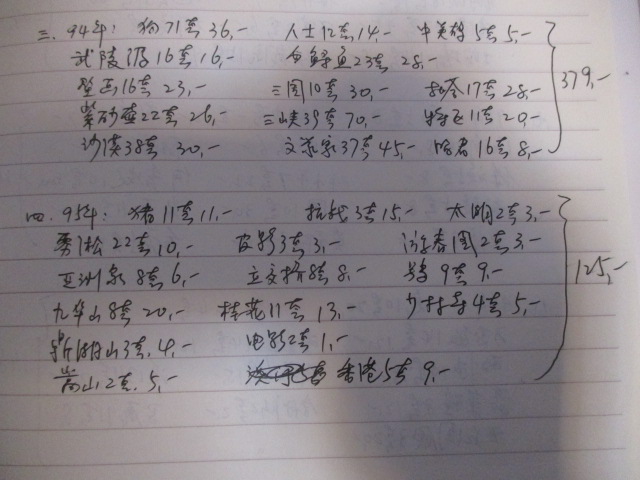 三. 94年: 狗71套 36,- 人士12套14,- 中美鹤5套5,-
武陵源16套16,- 白鲟鱼23套 28,-
壁画16套 23,- 三国10套 30,- 赵奢17套28,-
紫砂壶22套 26,- 三峡39套 70,- 特飞11套20,-
沙漠38套 30,- 文学家37套45,- 16套8,-
379,-
四. 95年: 猪11套11,- 抗战3套15,- 太明2套3,-
松22套10,- 皮影3套3,- 游春图2套3-
亚洲象8套6,- 立交桥8套8,- 9套9,-
九华山8套20,- 桂花11套 13,- 少林寺4套5,-
山3套.4,- 电影2套1,-
嵩山2套.5,- 香港5套 9,-
125,-